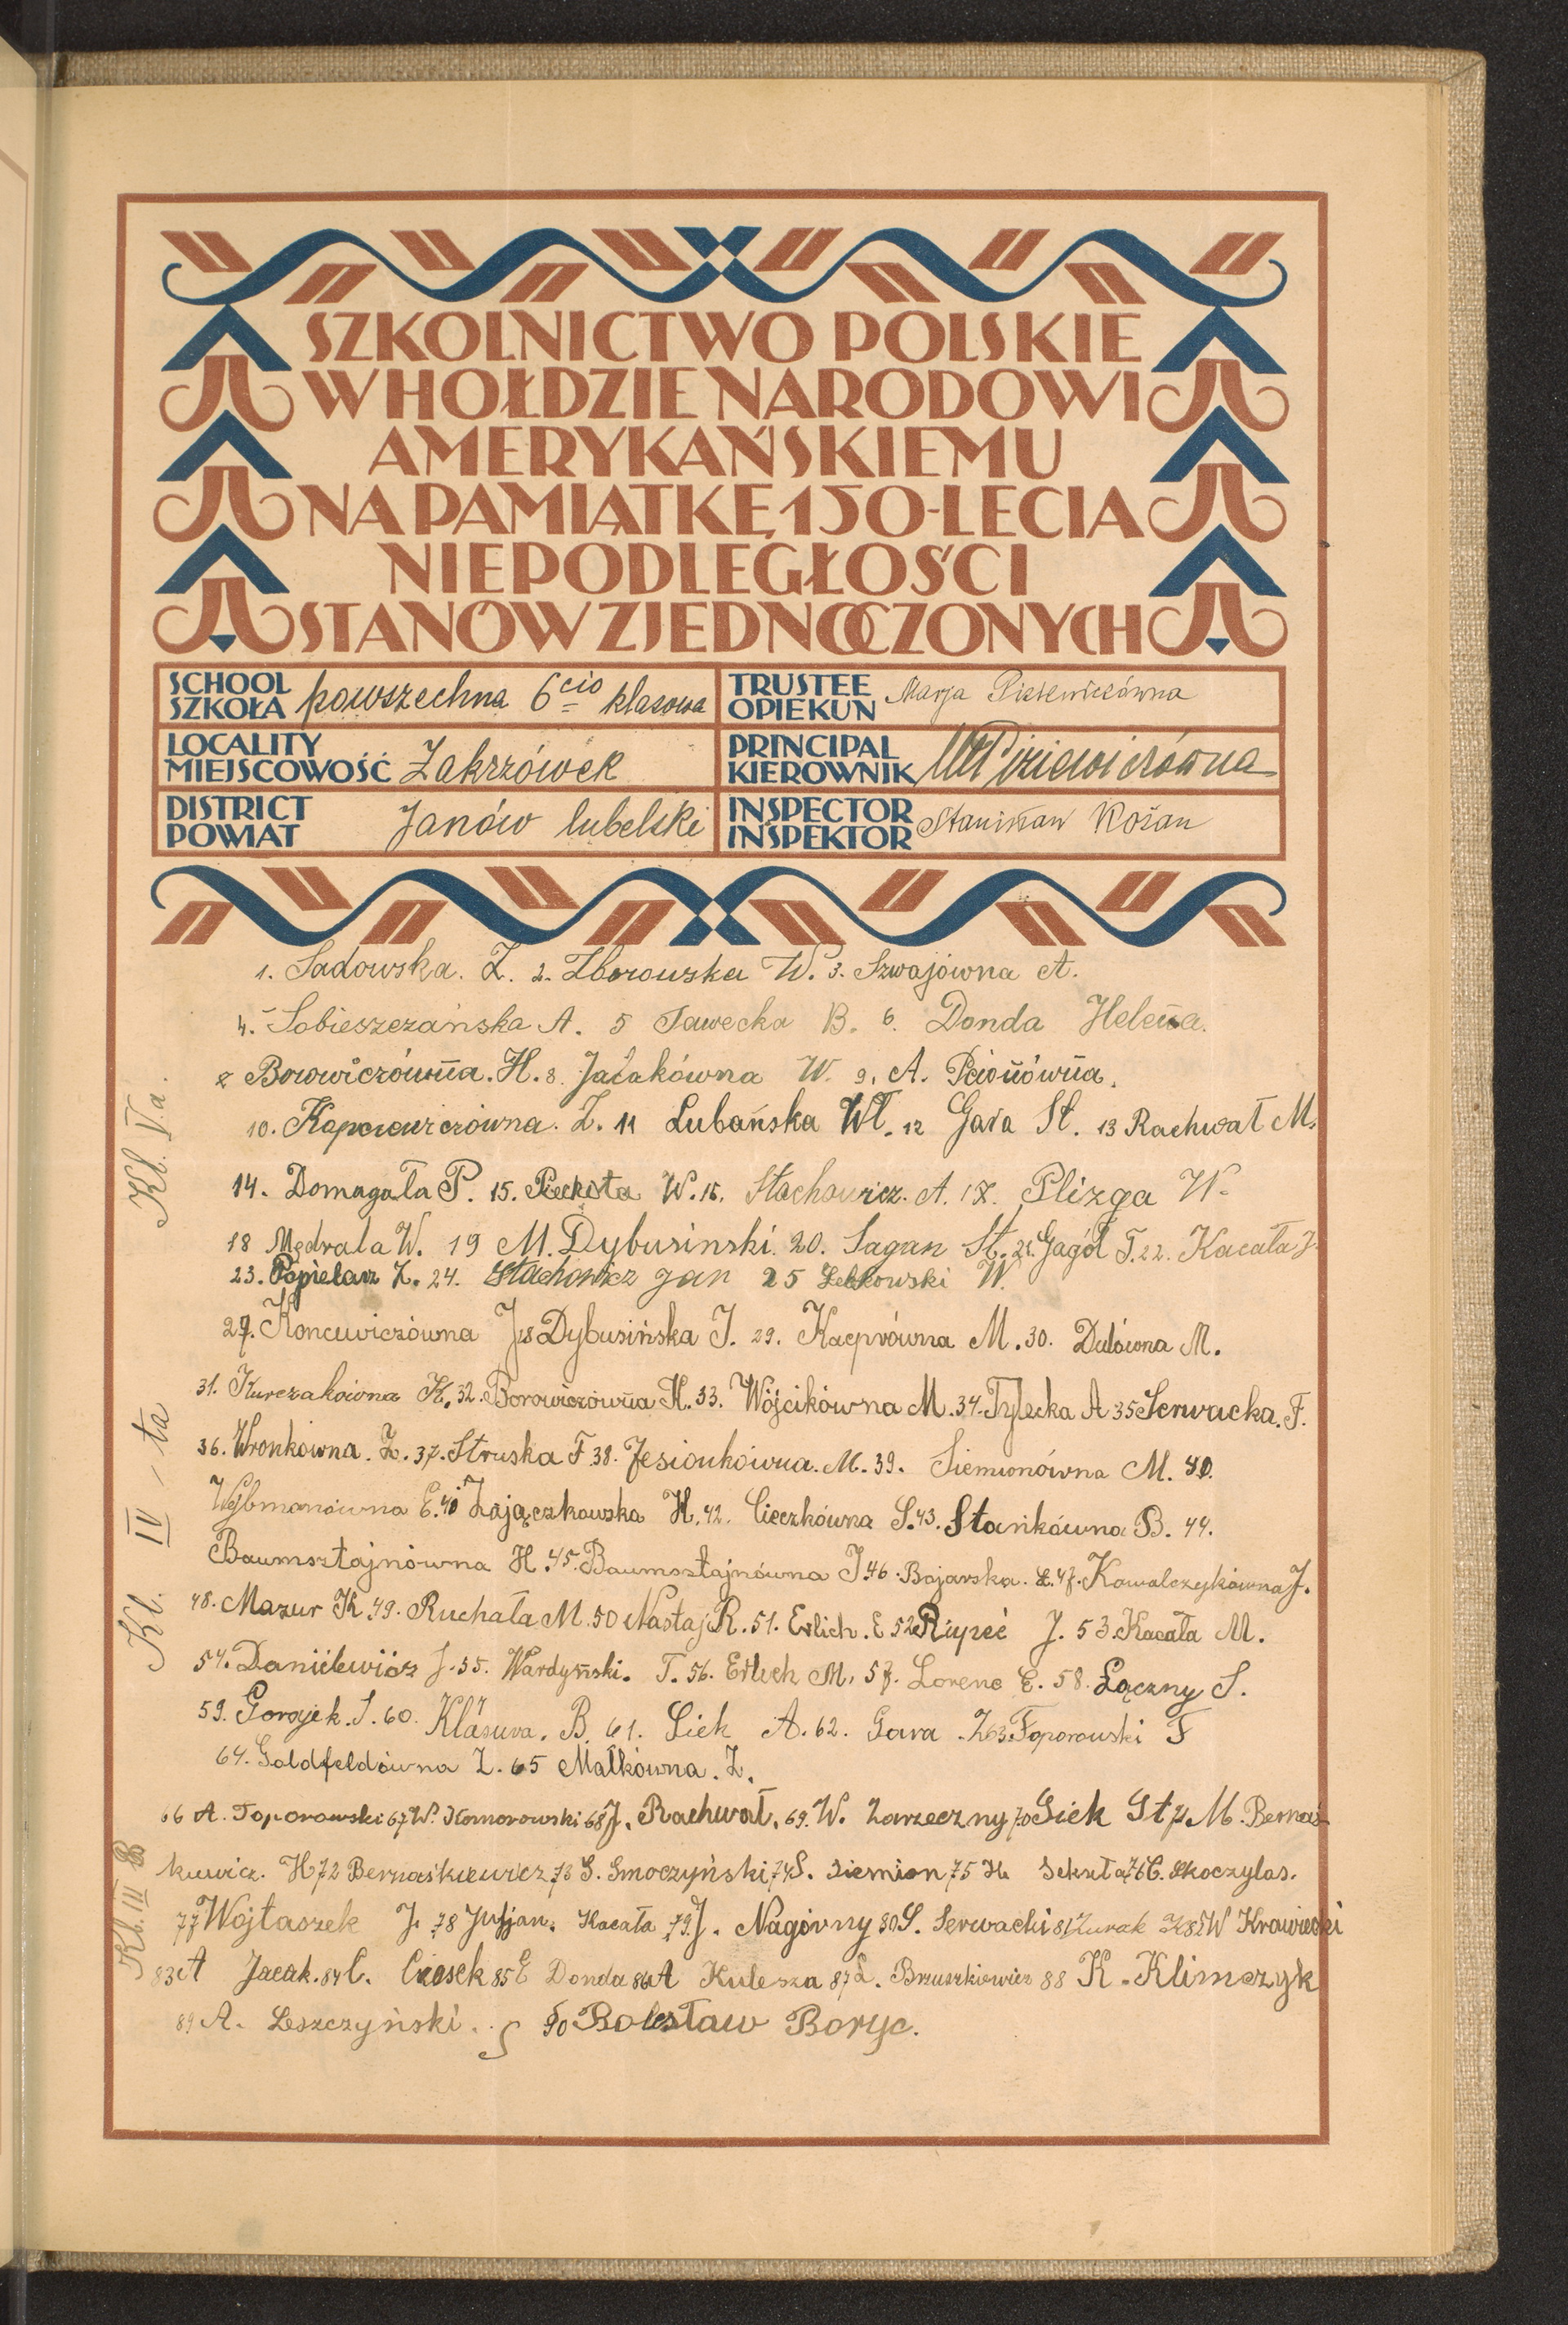 SZKOLNICTWO POLSKIE
W HOŁDZIE NARODOWI
AMERYKAŃSKIEMU
NA PAMIĄTKĘ 150-LECIA
NIEPODLEGŁOŚCI
STANÓW ZJEDNOCZONYCH
SCHOOL SZKOŁA powszechna 6cio klasowa
TRUSTEE OPIEKUN Marja
LOCALITY MIEJSCOWOŚĆ Zakrzówek
PRINCIPAL KIEROWNIK
DISTRICT POWIAT Janów lubelski
INSPECTOR INSPEKTOR Stanisław Kożan
Kl. Va.
1. Sadowska. Z. 2. Zborowska W. 3. Szwajówna A.
4. Sobieszczańska A. 5 Sawecka B. 6. Donda Helena.
Borowiczówna. H. 8. Jacakówna W. 9. A. Pcionówna.
10. Kapcewiczówna. Z. 11 Lubańska Wł. 12 Gara St. 13 Rachwał M.
14. Domagała P. 15. W. 16. Stachowicz. A. 17. Plizga W.
18 Mędrala W. 19 M. Dybusinski. 20. Sagan St. 21. Gagól T. 22. Kacała J.
23. Popielarz Z. 24. Stachowicz Jan 25 W.
27. Koncewiczówna J 28 Dybusińska J. 29. Kacprówna M. 30. Dulówna M.
Kl. IV-ta
31. Kurczakówna K. 32. Borowiczówna H. 33. Wójcikówna M. 34. Tylecka A 35 Serwacka. F.
36. Wronkówna. Z. 37. Struska F 38. Jesionkówna. M. 39. Siemionówna M. 40.
Wajbmanówna E. 40 Zajączkowska H. 42. Cieczkówna S. 43. Stańkówna B. 44.
Baumsztajnówna H. 45. Baumsztajnówna J. 46. Bojarska. 47. Kowalczykówna J.
48. Mazur K. 49. Ruchała M. 50 Nastaj R. 51. Erlich. E 52 Rupeć J. 53. Kacała M.
54. Danilewicz J. 55. Wardyński. T. 56. Erlich M. 57. Lorenc E. 58. Łączny S.
59. Gorajek. S. 60. B. 61. Siek A. 62. Gara. Z 63. Toporowski F
64. Goldfeldówna Z. 65 Małkówna. Z.
Kl. III B
66 A. Toporowski 67 W. Komorowski 68 J. Rachwał. 69. W. Zarzeczny 70 Siek St 71. M. Bernaś-
kiewicz. H 72 Bernaśkiewicz 73 S. Smoczyński 74 S. Siemion 75 H Sekuła 76 C. Skoczylas.
77 Wojtaszek J. 78 Juljan. Kacała 79 J. Nagórny 80 S. Serwacki 81 Żurak K 82 W Krawiecki
83 A Jacak. 84 C. Ciosek 85 E Donda 86 A Kulesza 87 L. Bruszkiewicz 88 K. Klimczyk
89 A. Leszczyński. 90 Bolesław Boryc.